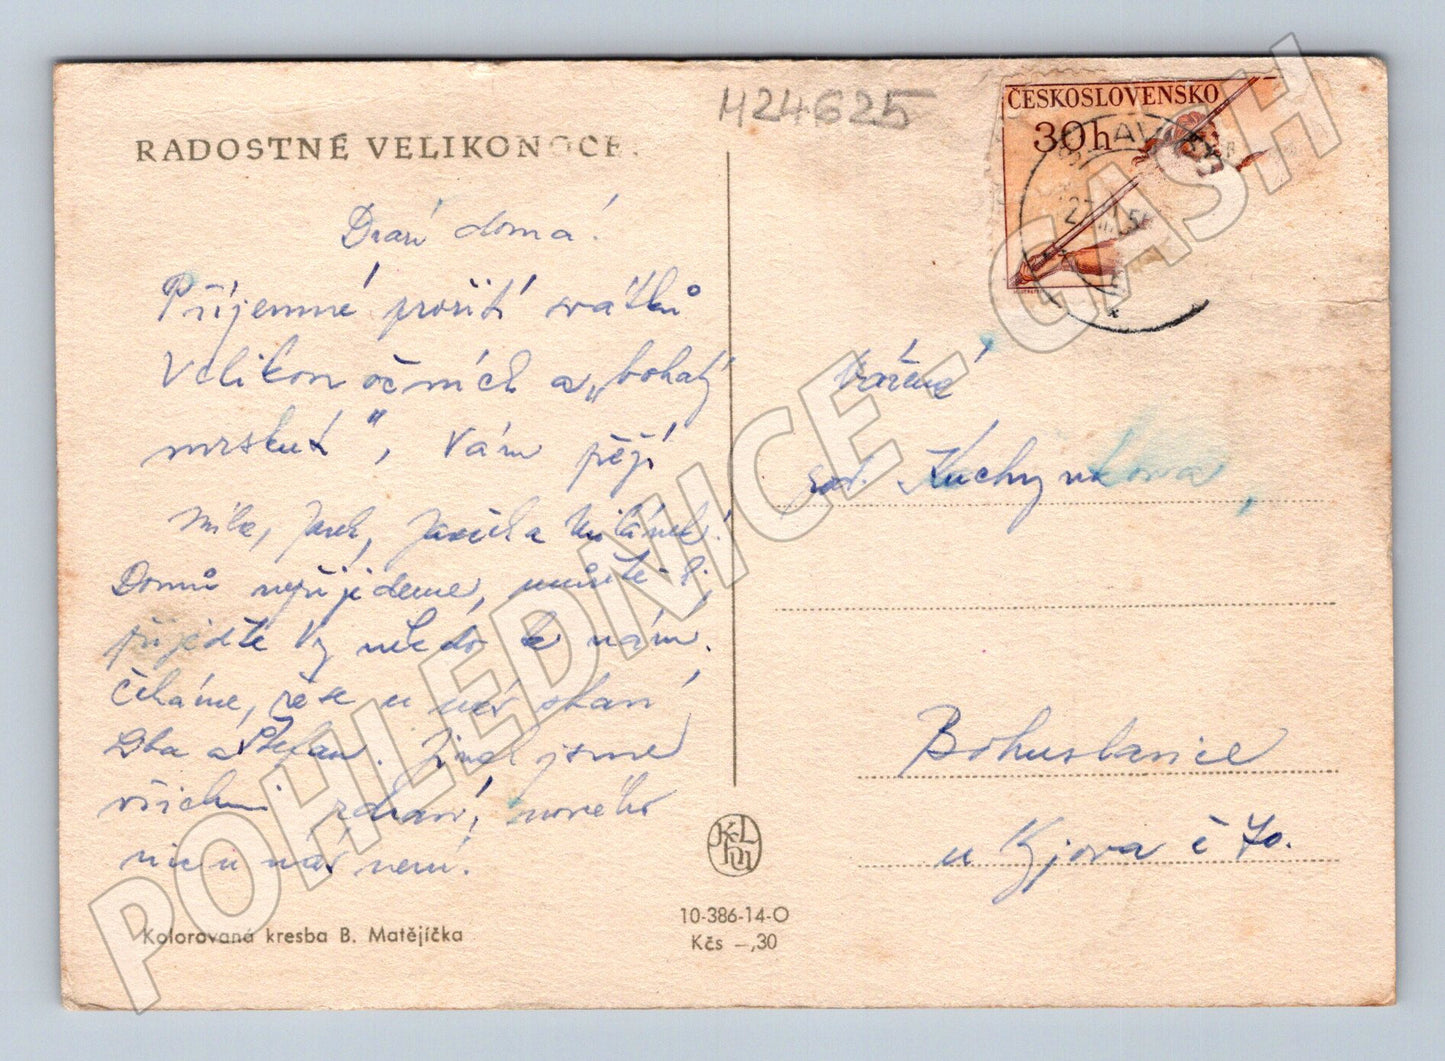 M24625
RADOSTNÉ VELIKONOCE.
ČESKOSLOVENSKO
30h
Drazí doma!
Příjemné prožití svátků
Velikonočních a „bohatý
mrskut", Vám přejí
Mila, Jarek, a Milánek!
Domů nepřijedeme,
přijeďte Vy někdo k nám.
Čekáme, že se u nás staví
a Štefan. Jinak jsme
všichni zdraví, nového
nic u nás není.
Vážená
sod. Kuchynkova,
Bohuslavice
u Kyjova č 70.
Kolorovaná kresba B. Matějíčka
10-386-14-O
Kčs —,30
POHLEDNICE - GASH